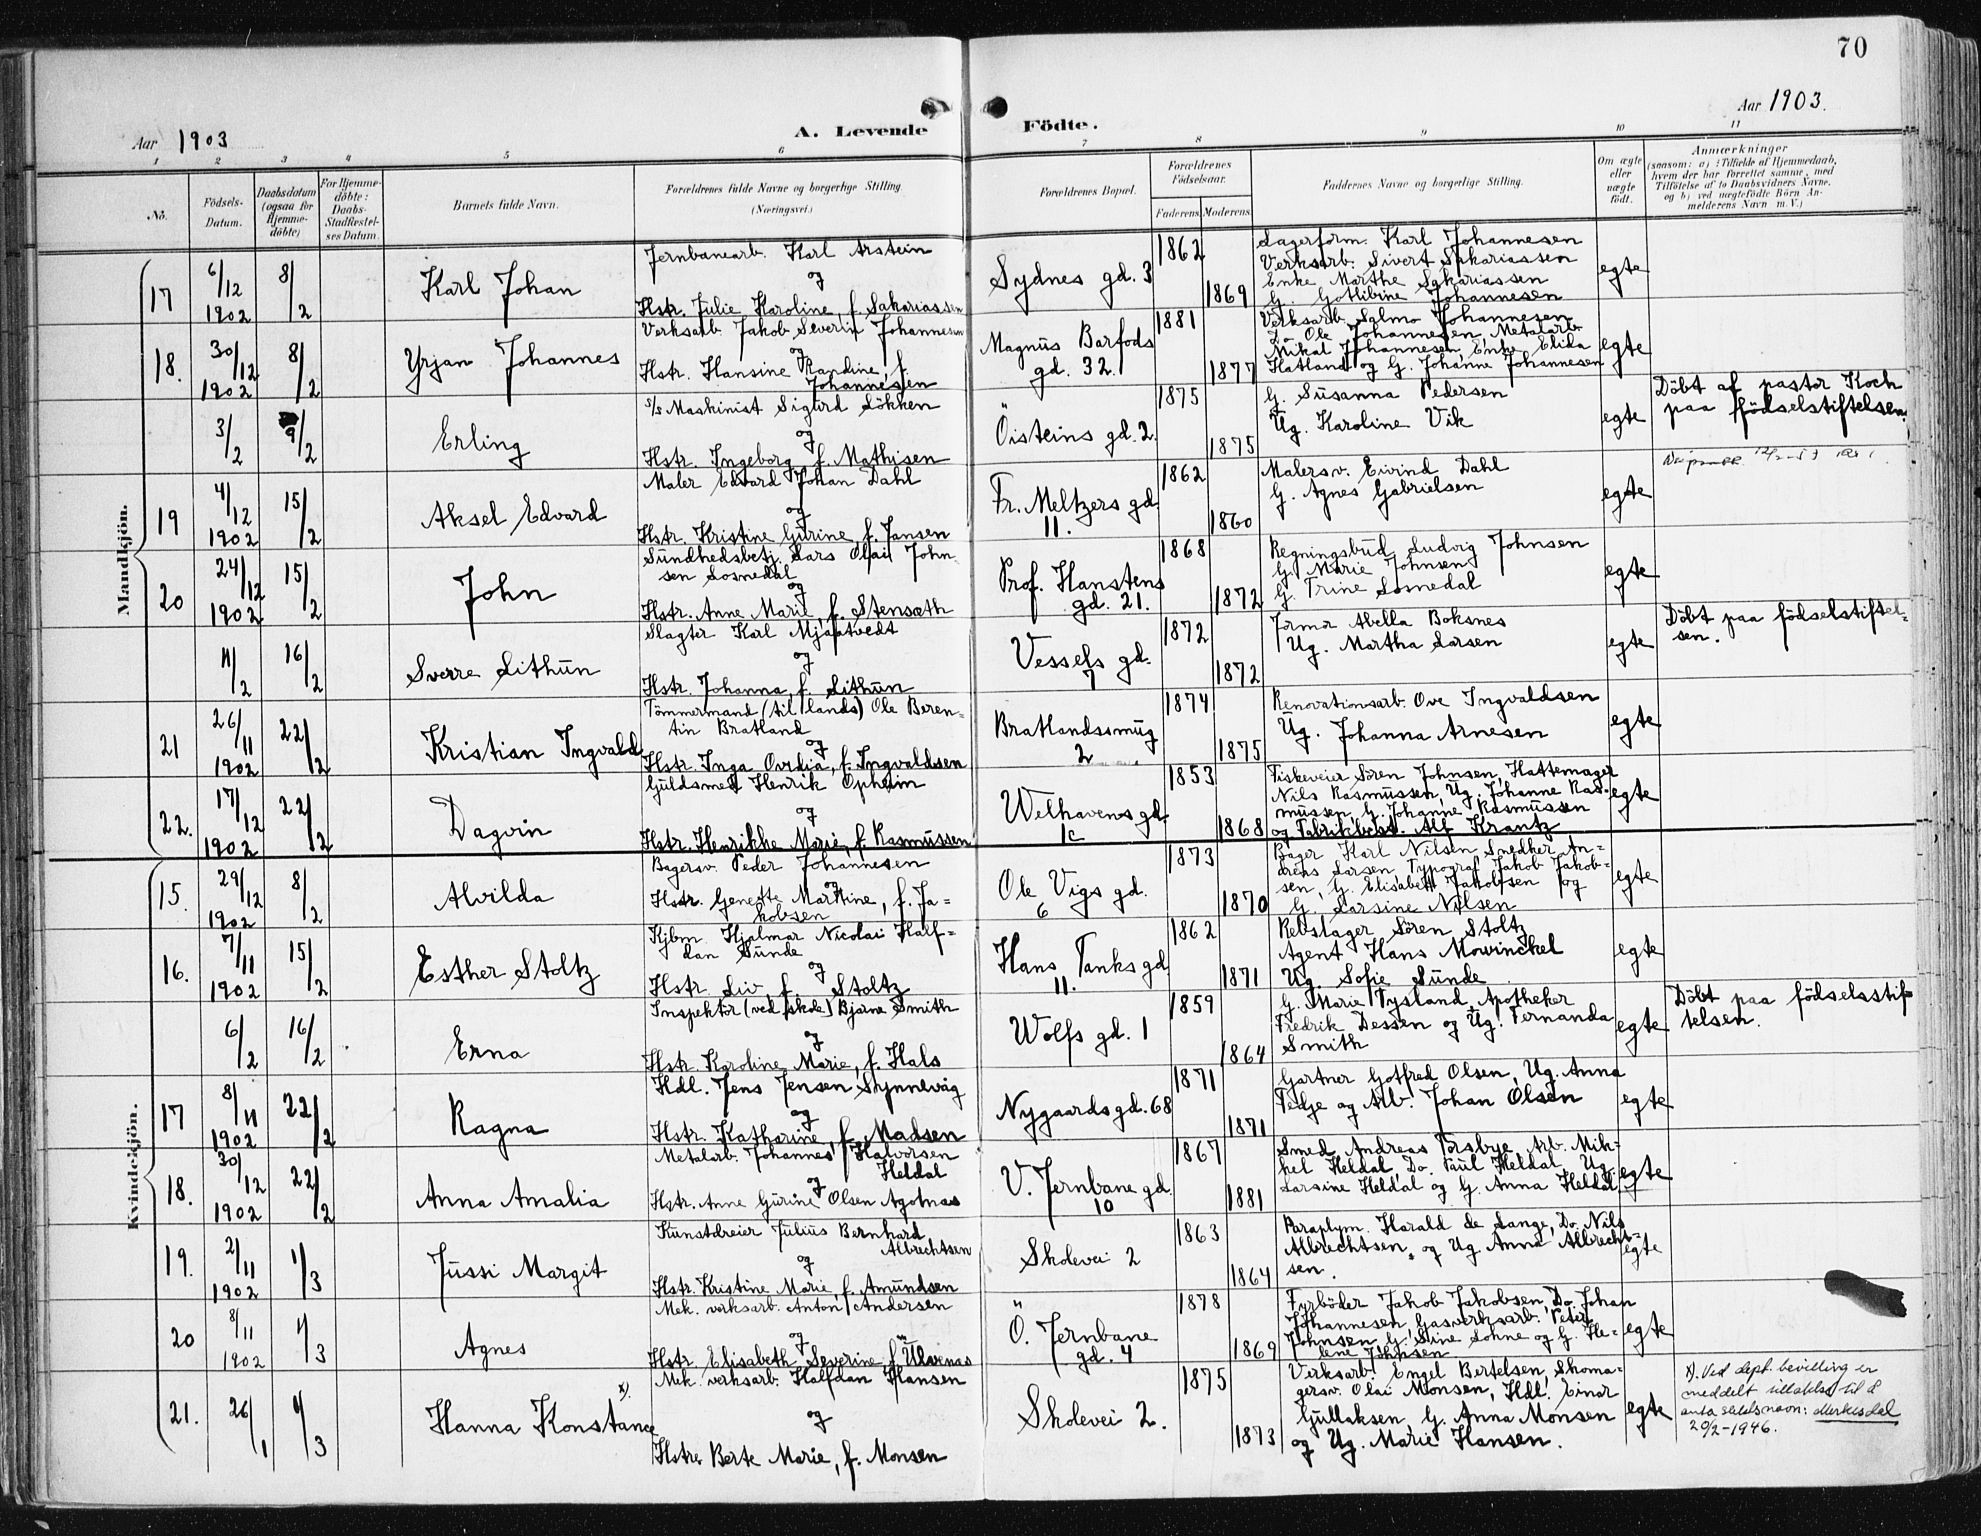 70
Aar 1903
A. Levende Födte.
Aar 1903.
1 2 3 4 5 6 7 8 9 10 11
No.
Födsels-Datum.
Daabsdatum (ogsaa for Hjemme-döbte)
For Hjemme-döbte: Daabs-Stadfæstel-ses Datum.
Barnets fulde Navn.
Forældrenes fulde Navne og borgerlige Stilling.
(Næringsvei.)
Forældrenes Bopæl.
Forældrenes Födselsaar.
Faderens. Moderens.
Faddernes Navne og borgerlige Stilling.
Om ægte eller uægte födt.
Anmærkninger
(saasom: a) i Tilfælde af Hjemmedaab,
hvem der har forrettet samme, med
Tilföielse af to Daabsvidners Navne,
og b) ved uægtefödte Börn An-
melderens Navn m. V.)
Mandkjön.
17 6/12 1902 8/2 Karl Johan
Jernbanearb. Karl Arstein
og
Hstr. Julie Karoline f. Sakariassen
Sydnes gd. 3 1862 1869
Lagerform. Karl Johannesen
Verksarb. Sivert Sakariassen
Enke Marthe Sakariassen
G. Gotlibine Johannesen
egte
18. 30/12 1902 8/2 Yrjan Johannes
Verksarb. Jakob Severin Johannesen
og
Hstr. Hansine Randine, f.
Johannesen
Magnus Barfods
gd. 32. 1881 1877
Verksarb. Salmo Johannesen
Do Ole Johannesen, Metalarb.
Mikal Johannesen, Enke Elida
Hatland og G. Johanne Johannesen
egte
3/2 9/2 Erling
s/s Maskinist Sigurd Lökken
og
Hstr. Ingeborg f. Mathisen
Öisteins gd. 2. 1875 1875
G. Susanna Pedersen
Ug. Karoline Vik
egte
Döbt af pastor Koch
paa födselstiftelsen.
19 4/12 1902 15/2 Aksel Edvard
Maler Edvard Johan Dahl
og
Hstr. Kristine Gurine, f. Jansen
Fr. Meltzers gd
11. 1862 1860
Malersv. Eivind Dahl
G. Agnes Gabrielsen
egte
20 24/12 1902 15/2 John
Sundhedsbetj. Lars Olai John-
sen Losnedal
og
Hstr. Anne Marie, f. Stensæth
Prof. Hanstens
gd. 21. 1868 1872
Regningsbud Ludvig Johnsen
G. Marie Johnsen
G. Trine Losnedal
egte
4/2 16/2 Sverre Lithun
Slagter Karl Mjaatvedt
og
Hstr. Johanna, f. Lithun
Vessels gd.
7 1872 1872
Jormor Abella Boksnes
Ug. Martha Larsen
egte
Döbt paa födselstiftel-
sen.
21 26/11 1902 22/2 Kristian Ingvald
Tömmermand (til lands) Ole Beren-
tin Bratland
og
Hstr. Inga Ovidia, f. Ingvaldsen
Bratlandssmug
2 1874 1875
Renovationsarb. Ove Ingvaldsen
Ug. Johanna Arnesen
egte
22. 17/12 1902 22/2 Dagvin
Guldsmed Henrik Opheim
og
Hstr. Henrikke Marie, f. Rasmussen
Welhavens gd
1c 1853 1868
Fiskeveier Sören Johnsen, Hattemager
Nils Rasmussen, Ug. Johanne Ras-
mussen, G. Johanne Rasmussen
og Fabrikbest. Alf Krantz
egte
Kvindekjön.
15. 29/12 1902 8/2 Alvilda
Bagersv. Peder Johannesen
og
Hstr. Genette Martine, f. Ja-
kobsen
Ole Vigs gd.
6 1873 1870
Bager Karl Nilsen, Snedker An-
dreas Larsen, Typograf Jakob Jakob-
sen, G. Elisabeth Jakobsen og
G. Larsine Nilsen
egte
16. 7/11 1902 15/2 Esther Stoltz
Kjbm Hjalmar Nicolai Half-
dan Sunde
og
Hstr. Liv f. Stoltz
Hans Tanks gd
11. 1862 1871
Rebslager Sören Stoltz
Agent Hans Mowinckel
Ug. Sofie Sunde
egte
6/2 16/2 Erna
Inspektör (ved skole) Bjarne Smith
og
Hstr. Karoline Marie, f. Hals
Wolfs gd. 1 1859 1864
G. Marie Tysland, Apotheker
Fredrik Dessen og Ug. Fernanda
Smith
egte
Döbt paa födselsstif-
telsen.
17 8/11 1902 22/2 Ragna
Hdl. Jens Jensen Synnevåg
og
Hstr. Katharine, f. Madsen
Nygaardsgd. 68 1871 1871
Gartner Gotfred Olsen, Ug. Anna
Fedje og Arb. Johan Olsen
egte
18. 30/12 1902 22/2 Anna Amalia
Metalarb. Johannes Halvorsen
Heldal
og
Hstr. Anne Gurine Olsen Agotnæs
V. Jernbane gd.
10 1867 1881
Smed Andreas Torsbye, Arb. Mik-
kel Heldal, Do. Paul Heldal, Ug.
Larsine Heldal og G. Anna Heldal
egte
19. 2/11 1902 1/3 Jussi Margit
Kunstdreier Julius Bernhard
Albrechtsen
og
Hstr. Kristine Marie, f. Amundsen
Skolevei 2 1863 1864
Paraplym. Harald de Lange, Do. Nils
Albrechtsen, og Ug Anna Albrecht-
sen.
egte
20 8/11 1902 1/3 Agnes
Mek. verksarb. Anton Andersen
og
Hstr. Elisabeth Severine, f. Ulvenæs
Ö. Jernbane
gd. 4 1878 1869
Fyrböder Jakob Jakobsen, Do. Johan
Johannesen, Gasverksarb. Peter
Johnsen, G. Stine Sohne og G. He-
lene Johnsen
egte
21. 26/1 1/3 Hanna Konstance x).
Mek. verksarb. Halfdan Hansen
og
Hstr. Berte Marie, f. Monsen
Skolevei 2. 1875 1873
Verksarb. Engel Bertelsen, Skoma-
gersv. Olai Monsen, Hdl. Einar
Gullaksen, G. Anna Monsen
og Ug. Marie Hansen.
egte
x). Ved dept. bevilling er
meddelt tillatelse til å
anta slektsnavn: Merkesdal
20/2-1946.